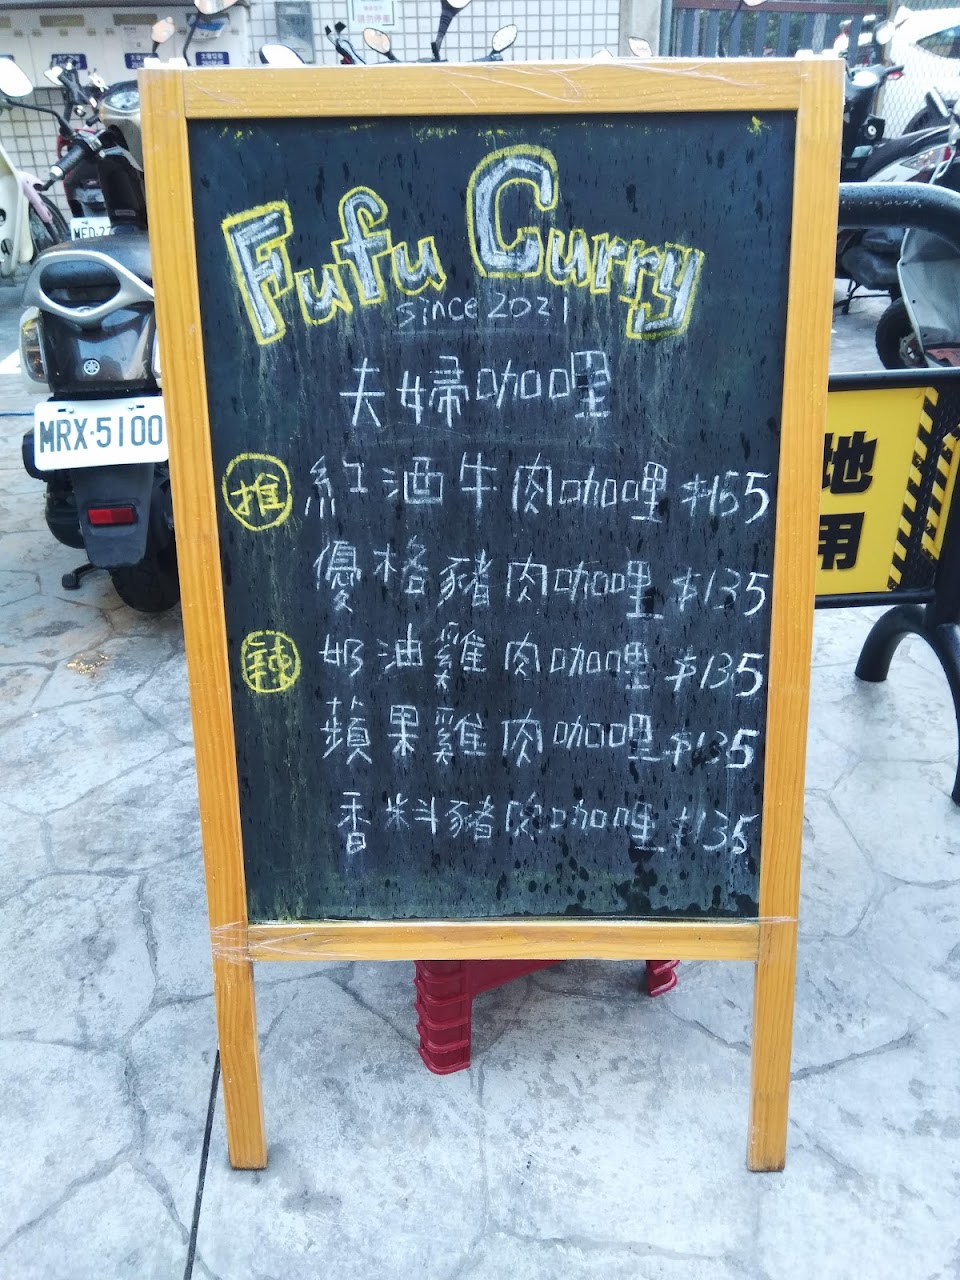 請勿停車
Fufu Curry
since 2021
夫婦咖哩
推 紅酒牛肉咖哩 $155
優格豬肉咖哩 $135
辣 奶油雞肉咖哩 $135
蘋果雞肉咖哩 $135
香料豬肉咖哩 $135
MRX-5100
地
用